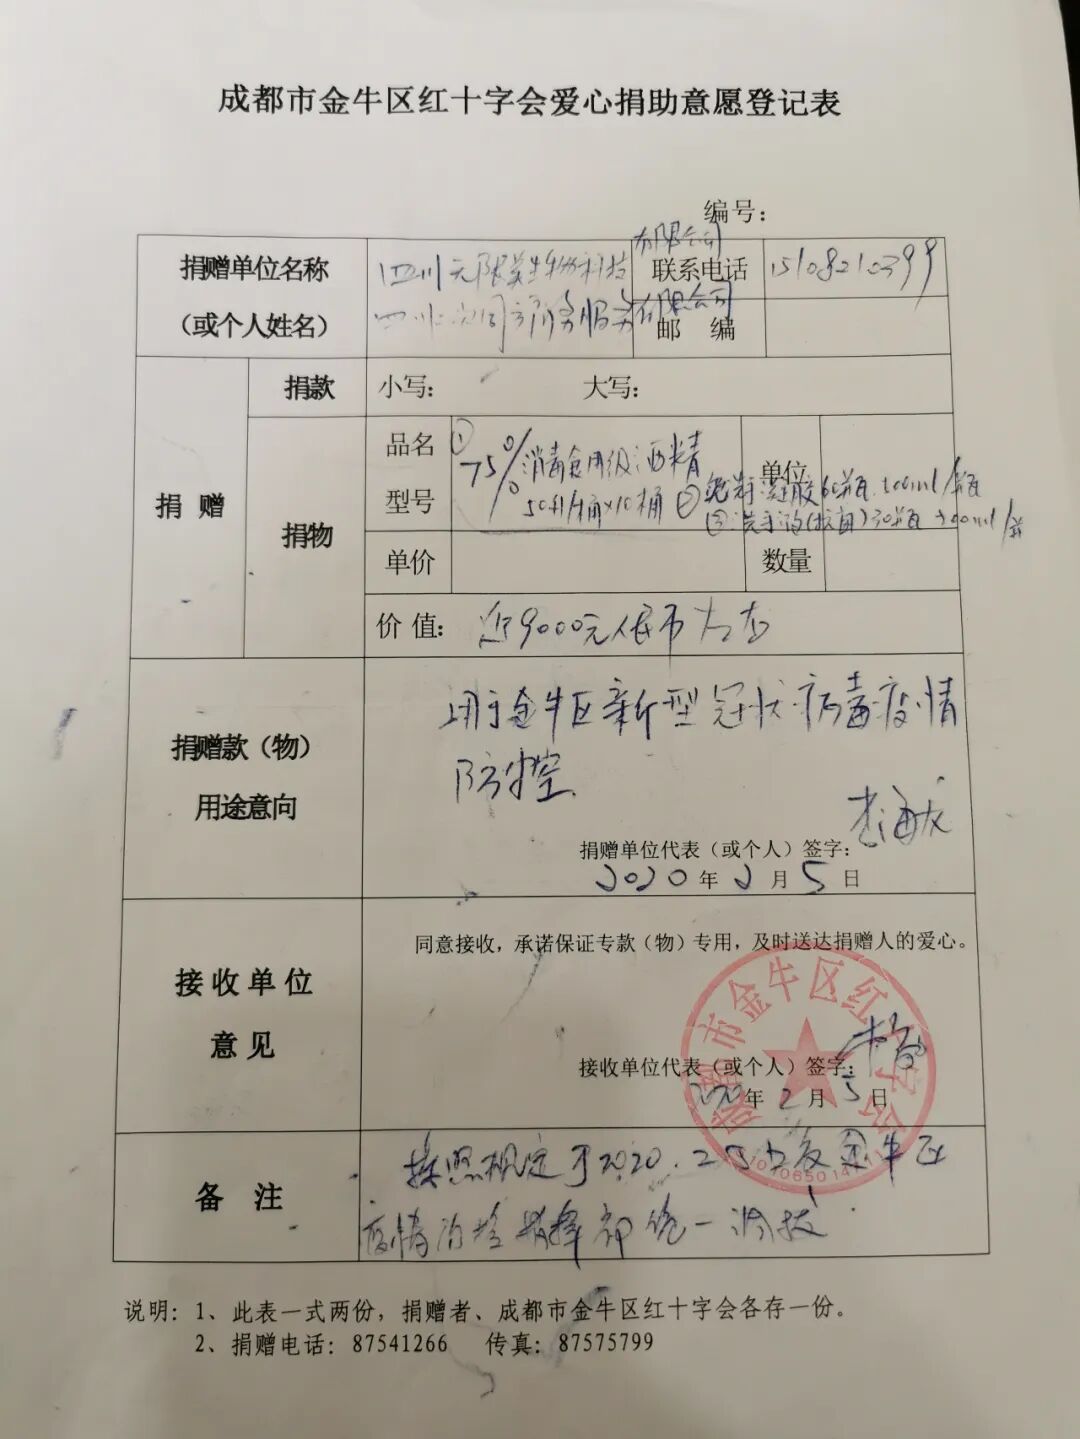 成都市金牛区红十字会爱心捐助意愿登记表
编号：
捐赠单位名称
（或个人姓名）
四川无限美生物科技有限公司
有限公司
联系电话
15108210399
邮 编
捐 赠
捐款
小写：
大写：
捐物
品名
型号
①75%消毒食用级酒精
50升/桶×10桶
单位
②免洗手凝胶60瓶 500ml/瓶
③洗手液(抗菌)30瓶 500ml/瓶
单价
数量
价 值：
近9000元人民币左右
捐赠款（物）
用途意向
用于金牛区新型冠状病毒疫情
防控
捐赠单位代表（或个人）签字：
2020年2月5日
接收单位
意见
同意接收，承诺保证专款（物）专用，及时送达捐赠人的爱心。
接收单位代表（或个人）签字：
2020年2月5日
成都市金牛区红十字会
备 注
按照规定于2020.2.5 金牛区
疫情防控指挥部统一调拨
说明：1、此表一式两份，捐赠者、成都市金牛区红十字会各存一份。
2、捐赠电话：87541266 传真：87575799